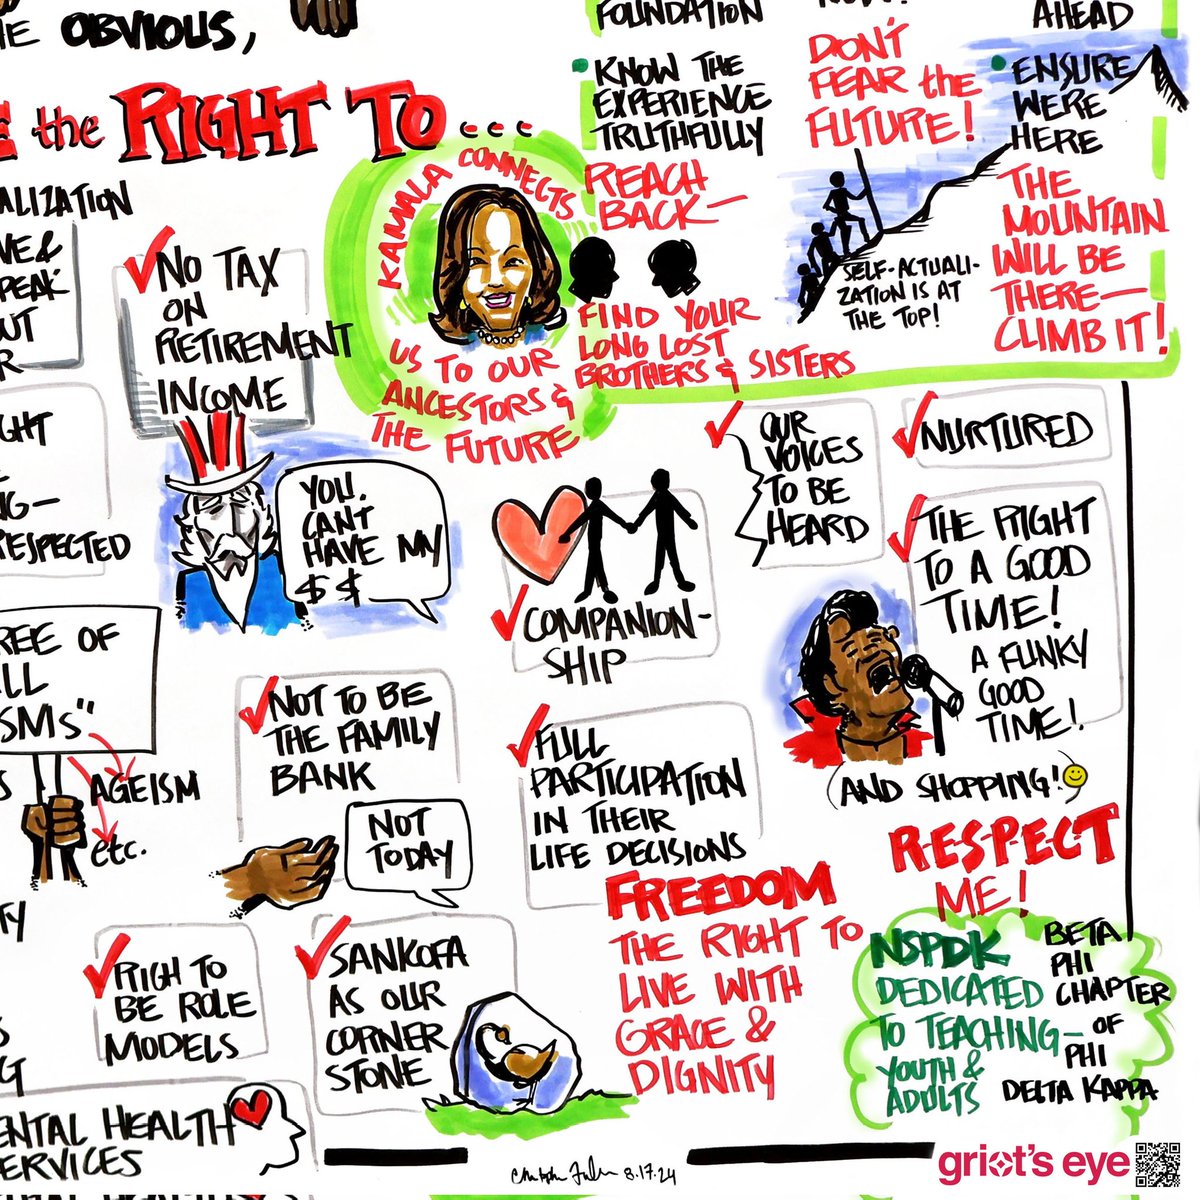 THE OBVIOUS,
the RIGHT TO...
ALIZATION
NO TAX
ON
RETIREMENT
INCOME
KAMALA CONNECTS
US TO OUR
ANCESTORS &
THE FUTURE
FOUNDATION
KNOW THE
EXPERIENCE
TRUTHFULLY
REACH
BACK—
FIND YOUR
LONG LOST
BROTHERS & SISTERS
DON'T
FEAR the
FUTURE!
SELF-ACTUALI-
ZATION IS AT
THE TOP!
AHEAD
ENSURE
WERE
HERE
THE
MOUNTAIN
WILL BE
THERE—
CLIMB IT!
YOU.
CAN'T
HAVE MY
$$
COMPANION-
SHIP
OUR
VOICES
TO BE
HEARD
NURTURED
THE RIGHT
TO A GOOD
TIME!
A FUNKY
GOOD
TIME!
AND SHOPPING!
RESPECTED
REE OF
LL
SMs"
AGEISM
etc.
NOT TO BE
THE FAMILY
BANK
NOT
TODAY
FULL
PARTICIPATION
IN THEIR
LIFE DECISIONS
R-E-S-P-E-C-T
ME!
FREEDOM
THE RIGHT TO
LIVE WITH
GRACE &
DIGNITY
RIGH TO
BE ROLE
MODELS
SANKOFA
AS OUR
CORNER
STONE
NSPDK
DEDICATED
TO TEACHING—
YOUTH &
ADULTS
BETA
PHI
CHAPTER
OF
PHI
DELTA KAPPA
ENTAL HEALTH
SERVICES
8.17.24
griot's eye